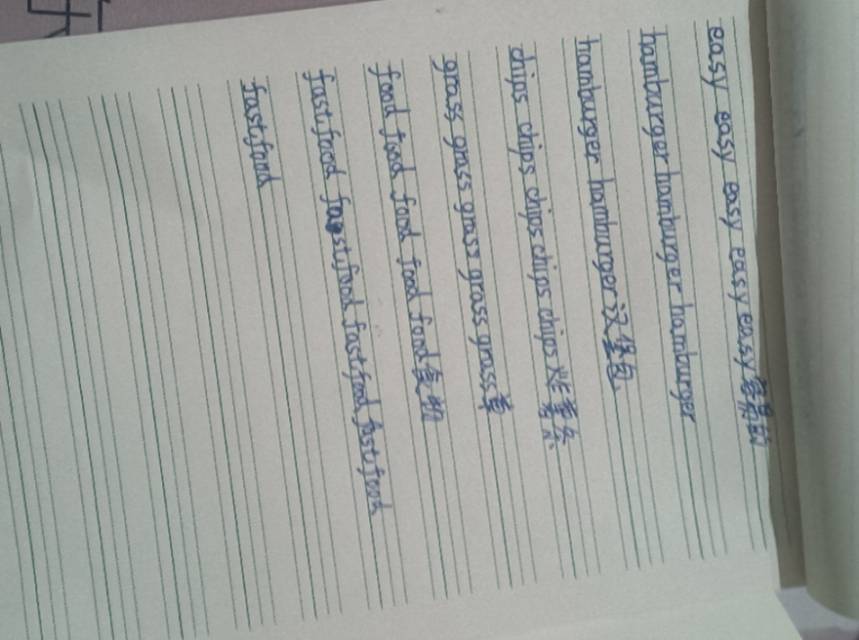 easy easy easy easy easy 容易的
hamburger hamburger hamburger
hamburger hamburger 汉堡包
chips chips chips chips chips 炸薯条
grass grass grass grass grass 草
food food food food food 食物
fast food fast food fast food fast food
fast food